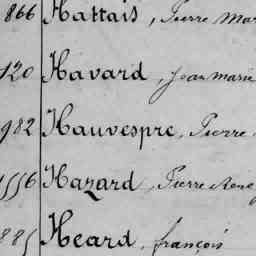 866 Hattais, Pierre Mar
120 Havard, Jean marie
982 Hauvespre, Pierre
1556 Hazard, Pierre René
885 Heard, françois